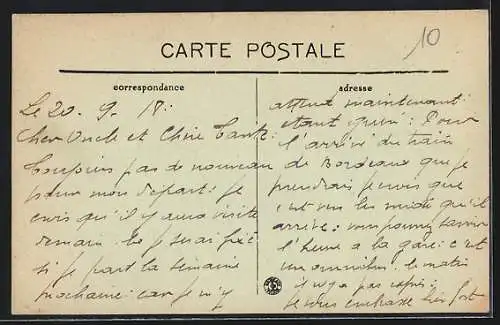 10
CARTE POSTALE
correspondance
adresse
Le 20. 9. 18:
Cher Oncle et Chère Tante:
Toujours pas de nouveau
pour mon départ: je
crois qu'il y aura visite
demain. Je serai fixé
si je part la semaine
prochaine: car je m'y
attend maintenant:
étant guéri: Pour
l'arrivé du train
de Bordeaux que je
prendrai je crois que
c'est vers les midi qu'il
arrive: vous pouvez savoir
l'heure a la gare: c'est
un omnibus: le matin
il n'y a pas express:
je vous embrasse bien fort